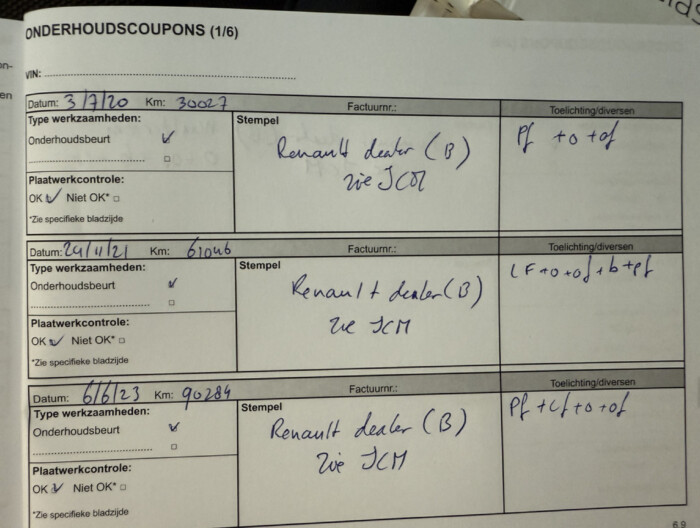 ONDERHOUDSCOUPONS (1/6)
VIN:
Datum: 3/7/20 Km: 30027 Factuurnr.: Toelichting/diversen
Type werkzaamheden: Stempel Pf + o + of
Onderhoudsbeurt Renault dealer (B)
zie ICM
Plaatwerkcontrole:
OK Niet OK*
*Zie specifieke bladzijde
Datum: 24/11/21 Km: 61046 Factuurnr.: Toelichting/diversen
Type werkzaamheden: Stempel LF + o + of + b + pf
Onderhoudsbeurt Renault dealer (B)
zie ICM
Plaatwerkcontrole:
OK Niet OK*
*Zie specifieke bladzijde
Datum: 6/6/23 Km: 90284 Factuurnr.: Toelichting/diversen
Type werkzaamheden: Stempel Pf + Lf + o + of
Onderhoudsbeurt Renault dealer (B)
zie ICM
Plaatwerkcontrole:
OK Niet OK*
*Zie specifieke bladzijde